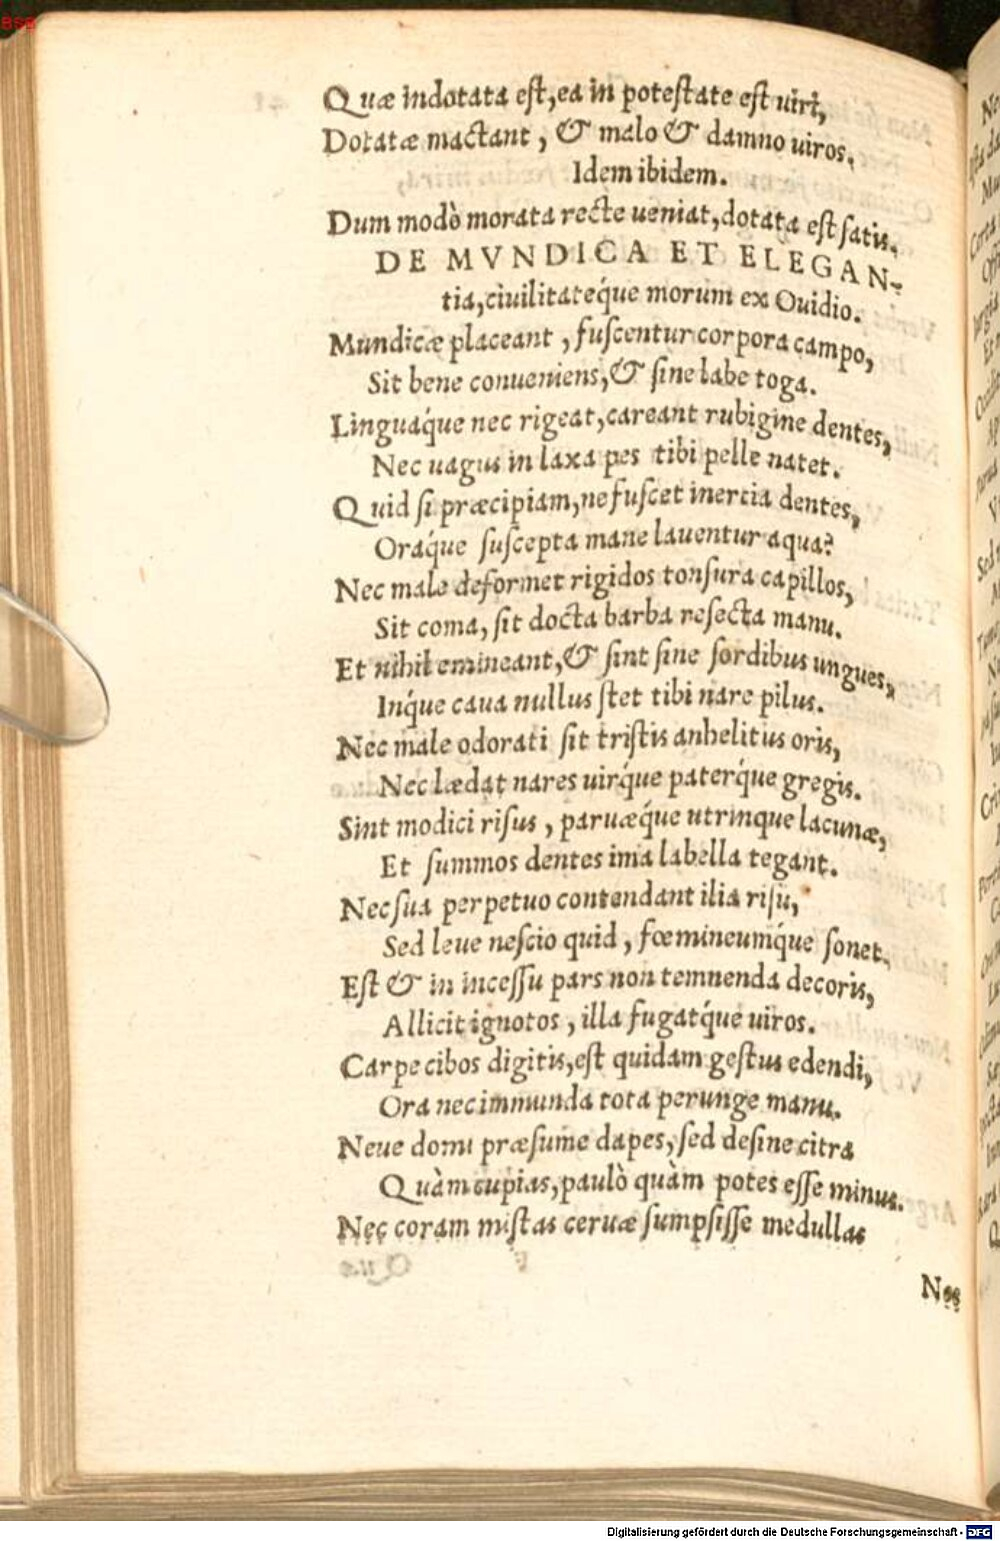 BSB
Quæ indotata est, ea in potestate est uiri,
Dotatæ mactant, & malo & damno uiros.
Idem ibidem.
Dum modò morata recte ueniat, dotata est satis.
DE MVNDICA ET ELEGAN-
tia, ciuilitateq́ue morum ex Ouidio.
Mundicæ placeant, fuscentur corpora campo,
Sit bene conueniens, & sine labe toga.
Linguaq́ue nec rigeat, careant rubigine dentes,
Nec uagus in laxa pes tibi pelle natet.
Quid si præcipiam, ne fuscet inertia dentes,
Oraq́ue suscepta mane lauentur aqua?
Nec male deformet rigidos tonsura capillos,
Sit coma, sit docta barba resecta manu.
Et nihil emineant, & sint sine sordibus ungues,
Inq́ue caua nullus stet tibi nare pilus.
Nec male odorati sit tristis anhelitus oris,
Nec lædat nares uirq́ue paterq́ue gregis.
Sint modici risus, paruæq́ue utrinque lacunæ,
Et summos dentes ima labella tegant.
Nec sua perpetuo contendant ilia risu,
Sed leue nescio quid, fœmineumq́ue sonet.
Est & in incessu pars non temnenda decoris,
Allicit ignotos, illa fugatq́ue uiros.
Carpe cibos digitis, est quidam gestus edendi,
Ora nec immunda tota perunge manu.
Neue domi præsume dapes, sed desine citra
Quàm cupias, paulò quàm potes esse minus.
Nec coram mistas ceruæ sumpsisse medullas
Nec
Digitalisierung gefördert durch die Deutsche Forschungsgemeinschaft - DFG